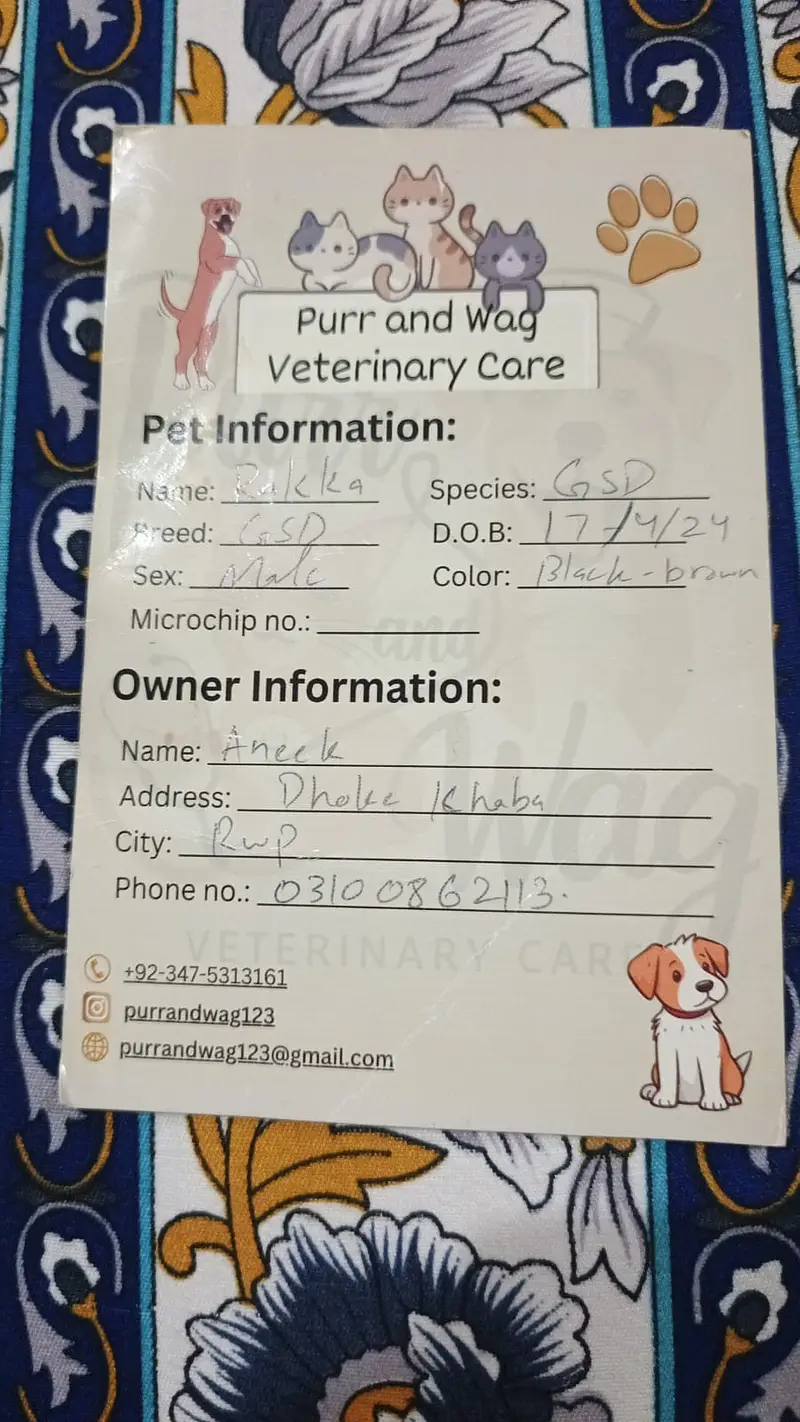 Purr and Wag
Veterinary Care
Pet Information:
Name: Rakka Species: GSD
Breed: GSD D.O.B: 17/4/24
Sex: Male Color: Black-brown
Microchip no.:
Owner Information:
Name: Aneek
Address: Dhoke Khaba
City: Rwp
Phone no.: 03100862113.
+92-347-5313161
purrandwag123
purrandwag123@gmail.com
and
Wag
VETERINARY CARE